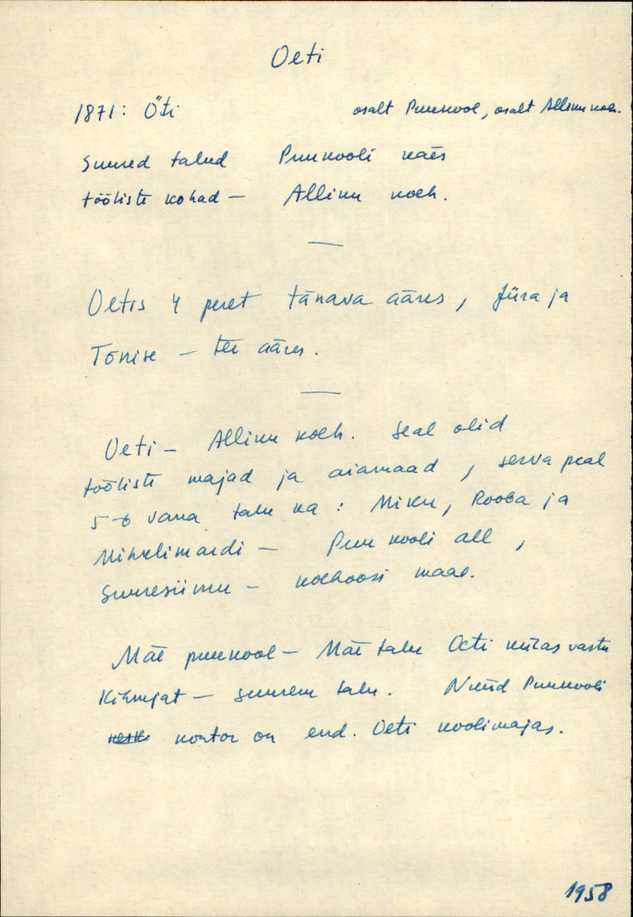 Oeti
1871: Öti osalt Puukool, osalt Alliku kolh.
Suured talud Puukooli käes
tööliste kohad — Alliku kolh.
Oetis 4 peret tänava ääres, Jüra ja
Tõnise — tee ääres.
Oeti — Alliku kolh. Seal olid
tööliste majad ja aiamaad, serva peal
5-6 vana talu ka: Miku, Rooba ja
Mihklimardi — Puukooli all,
Suuresiimu — kolhoosi maal.
Mäe puukool — Mäe talu Oeti külas vastu
— suurem talu. Nüüd Puukooli
kontor on end. Oeti koolimajas.
1958